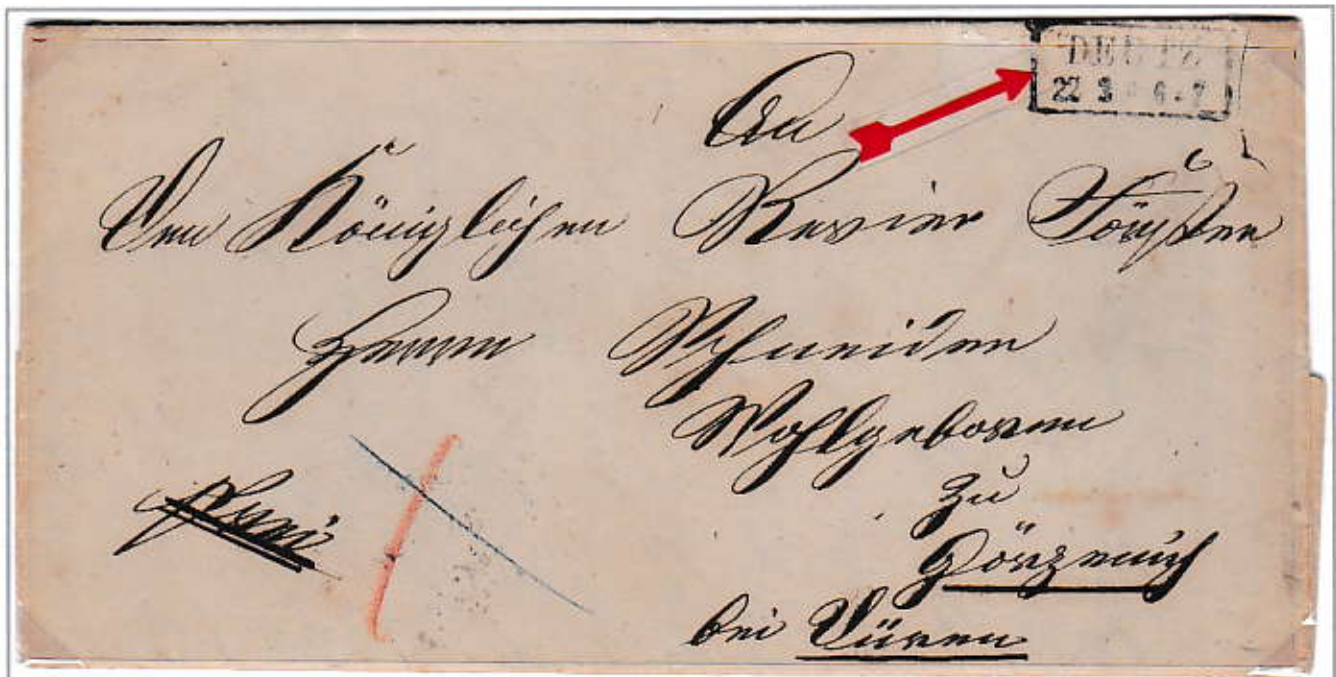 DEUTZ
22 3 * 6-7
An
Den Königlichen Revier Förster
Herrn Schneider
Wohlgeboren
zu
frei
Görzenich
bei Düren